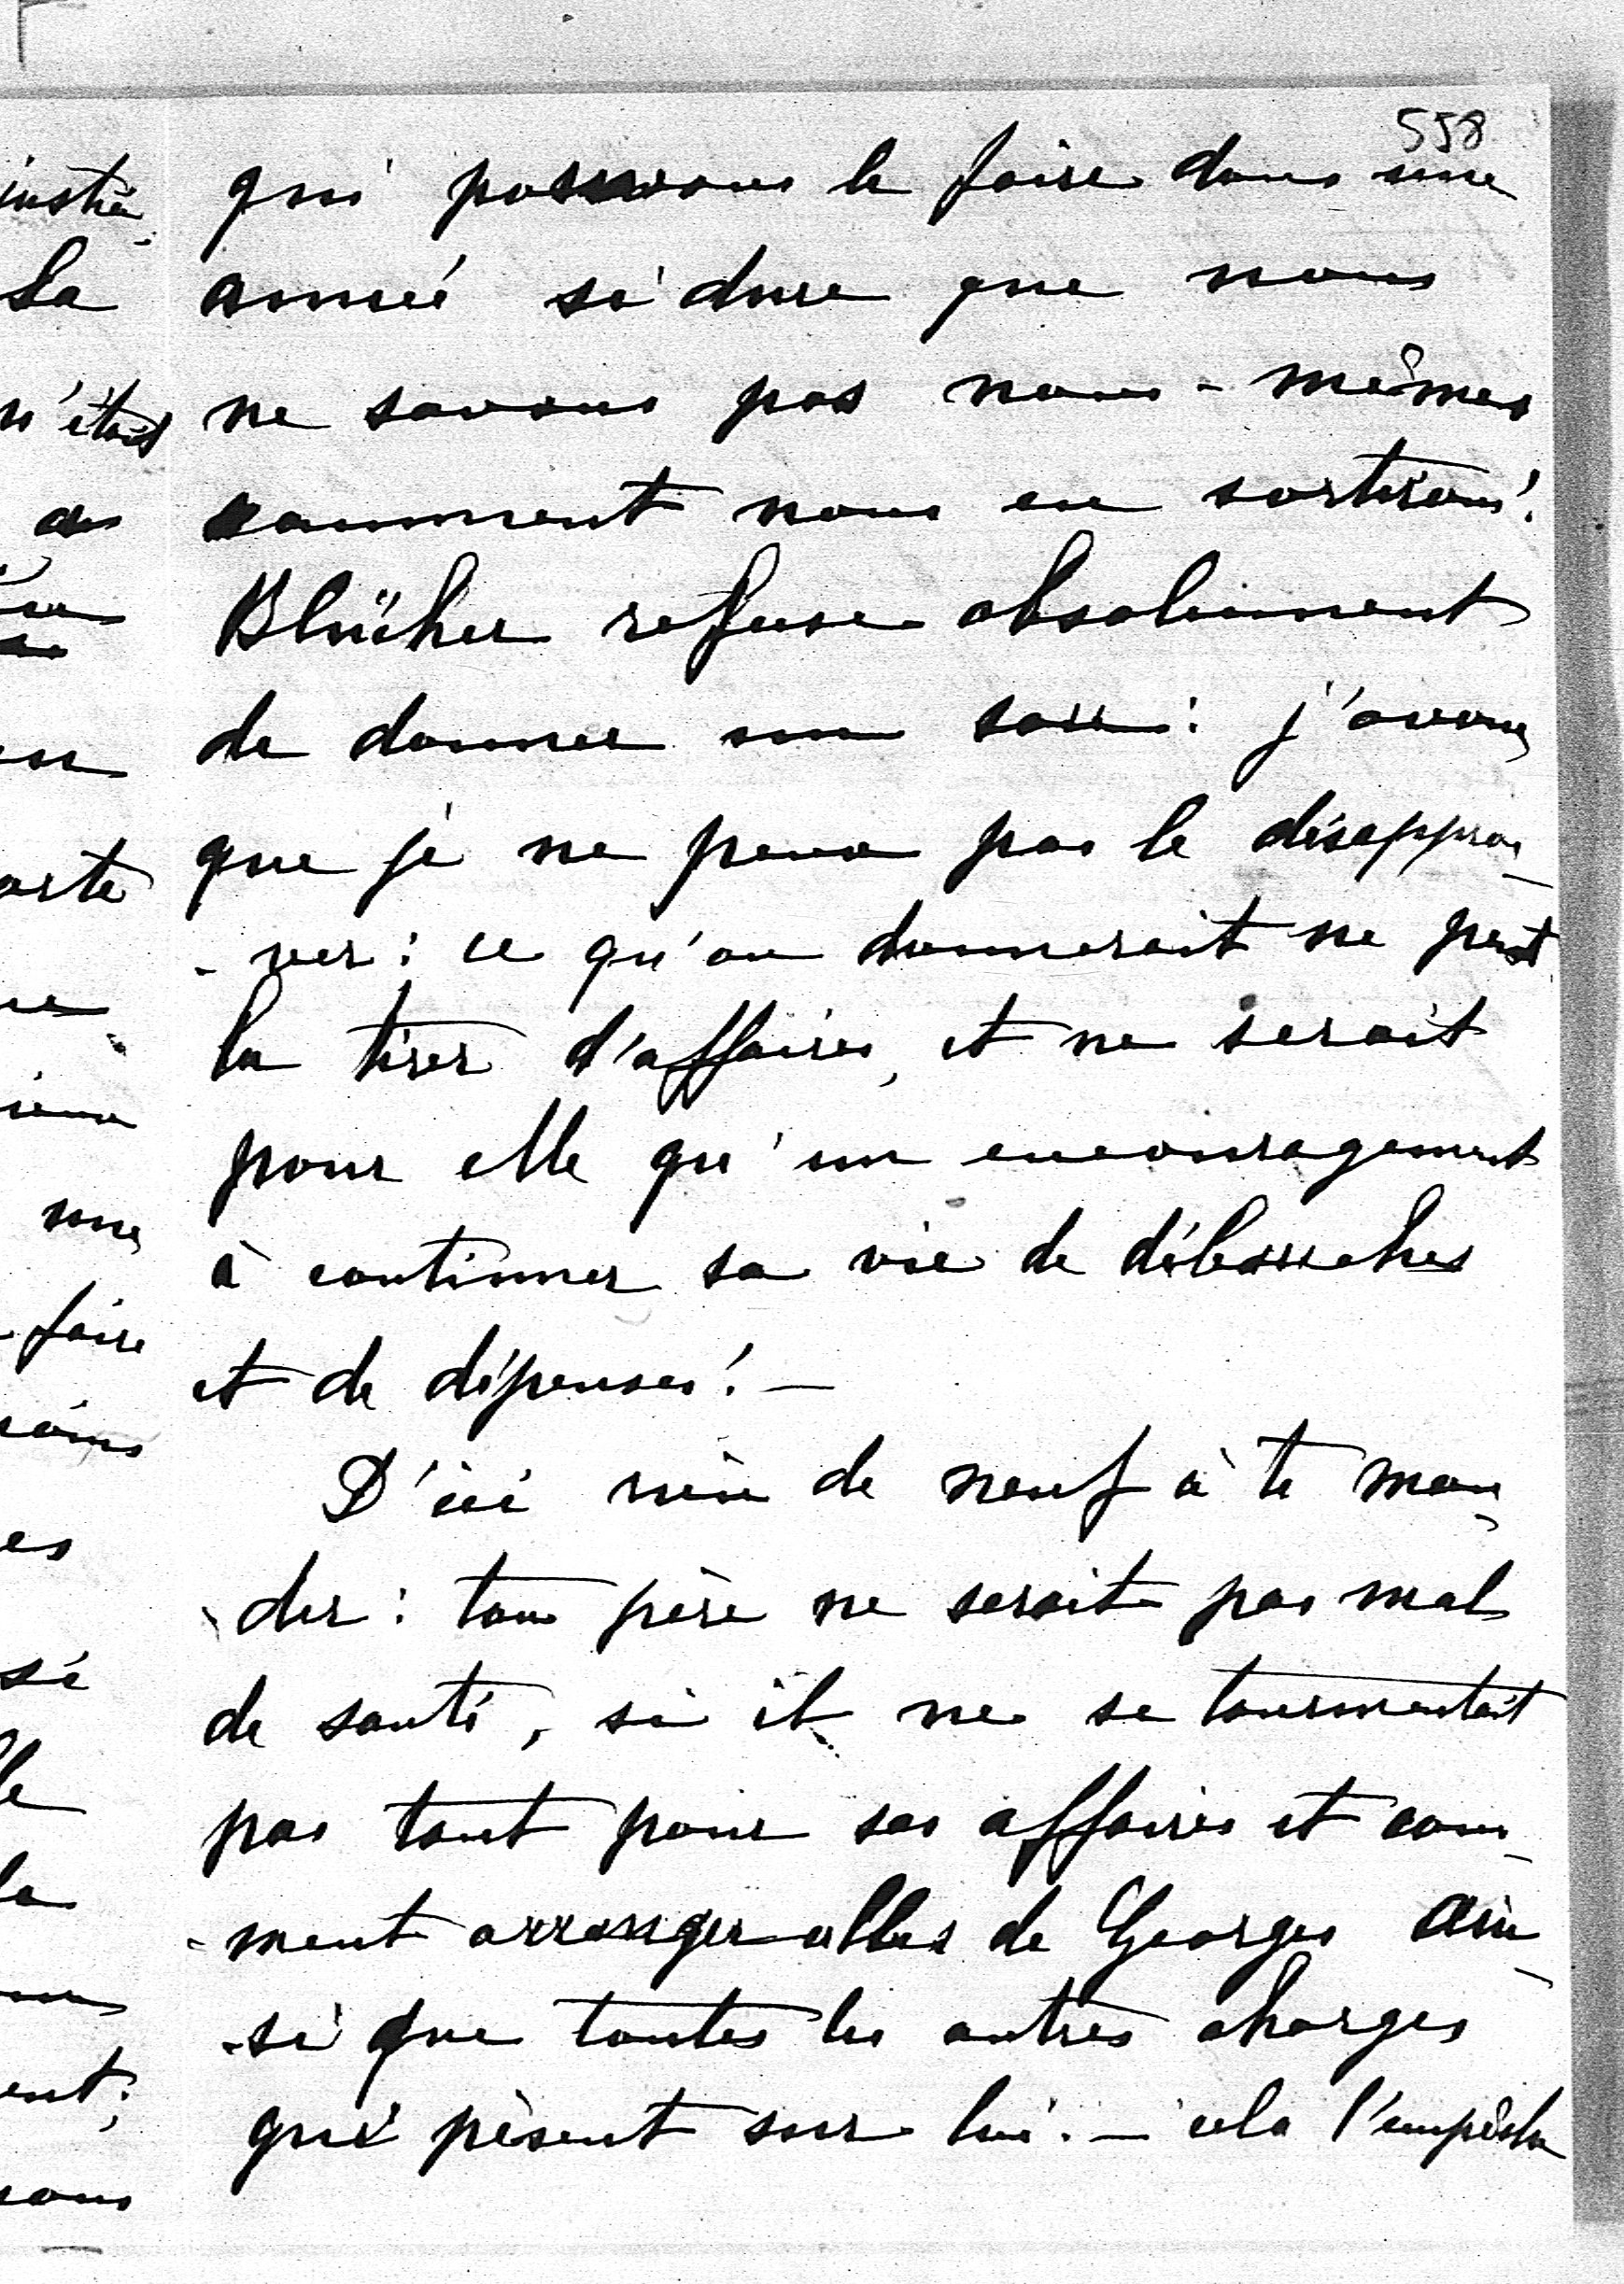 558
qui pouvons le faire dans une
année si dure que nous
ne savons pas nous-mêmes
comment nous en sortirons!
Blücher refuse absolument
de donner un sou: j'avoue
que je ne peux pas le désapprou-
-ver: ce qu'on donnerait ne peut
la tirer d'affaires, et ne serait
pour elle qu'un encouragement
à continuer sa vie de débauches
et de dépenses! —
D'ici rien de neuf à te man-
-der: ton père ne serait pas mal
de santé, si il ne se tourmentait
pas tant pour ses affaires et com-
-ment arranger celles de Georges ain-
-si que toutes les autres charges
qui pèsent sur lui. — cela l'empêche